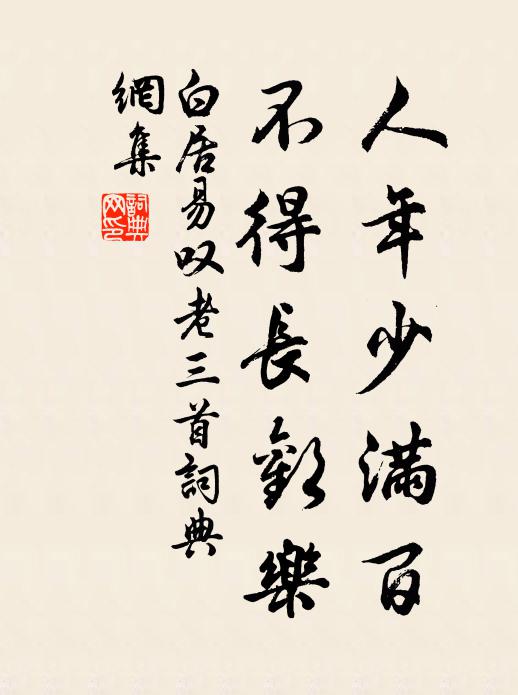 人年少滿百
不得長歡樂
白居易叹老三首詞典
網集
詞典
网印